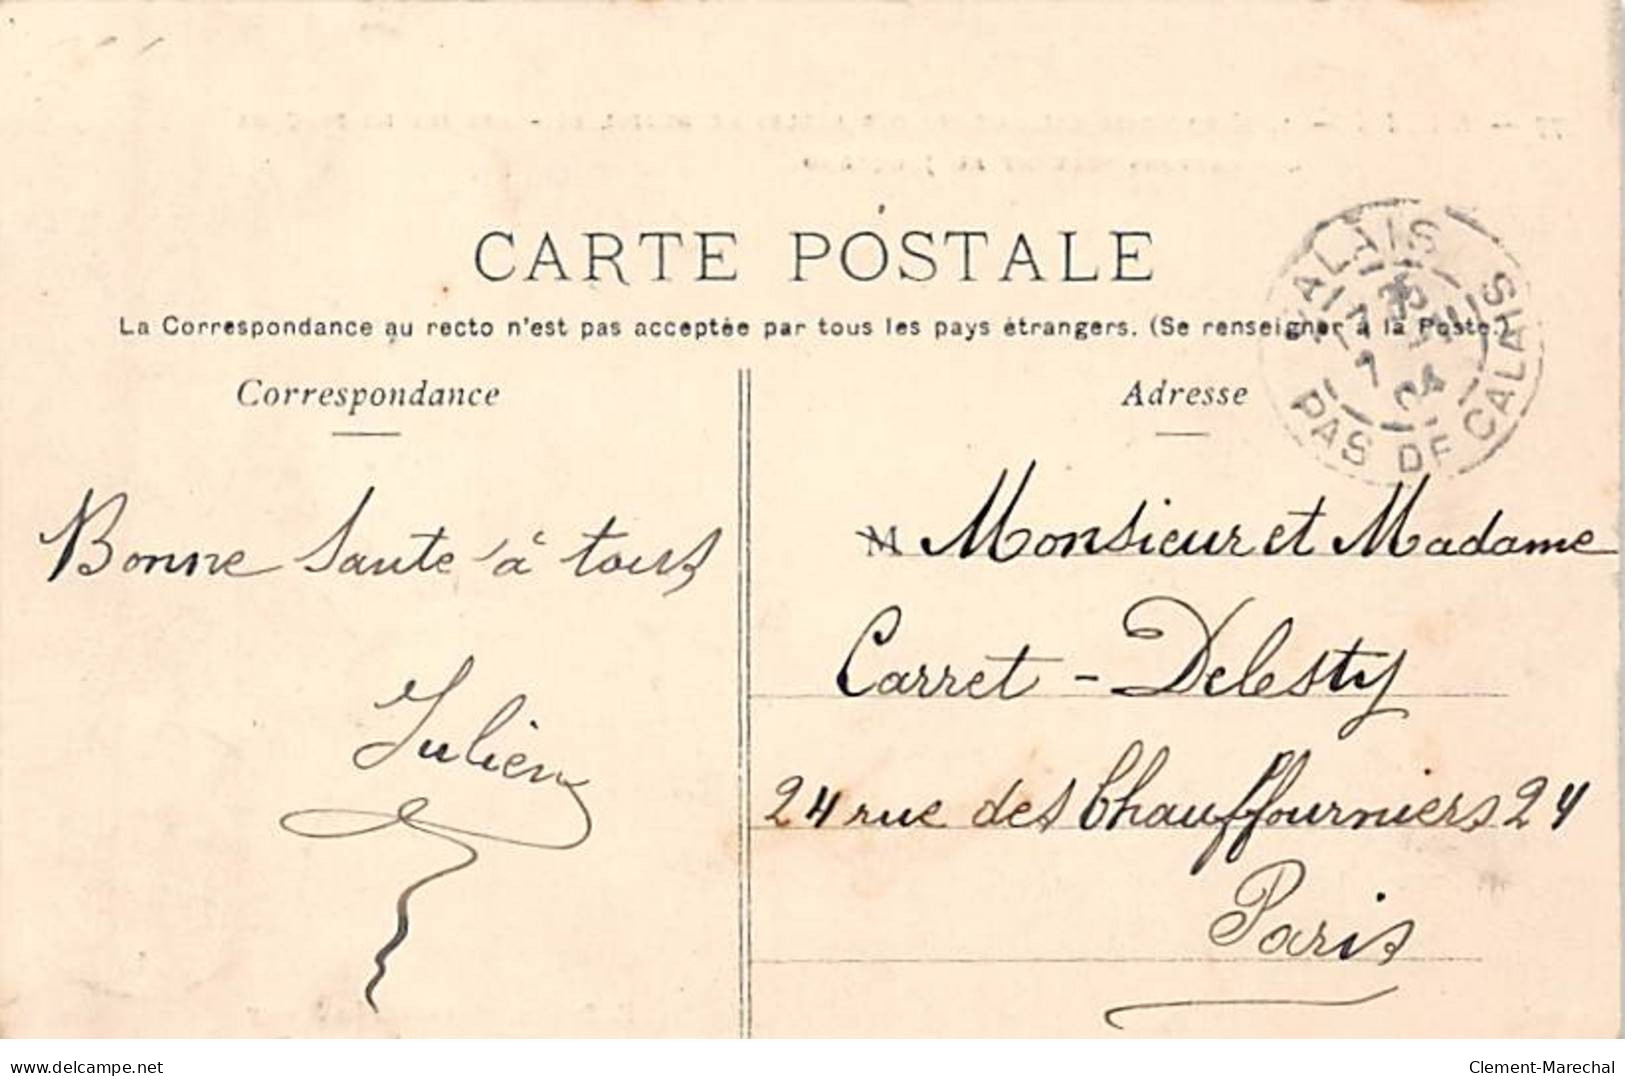 CARTE POSTALE
La Correspondance au recto n'est pas acceptée par tous les pays étrangers. (Se renseigner à la Poste.)
Correspondance
Adresse
CALAIS
PAS DE CALAIS
04
Bonne Sante à tous
Julien
M Monsieur et Madame
Carret - Delesty
24 rue des Chauffourniers 24
Paris
delcampe.net
Clement-Marechal